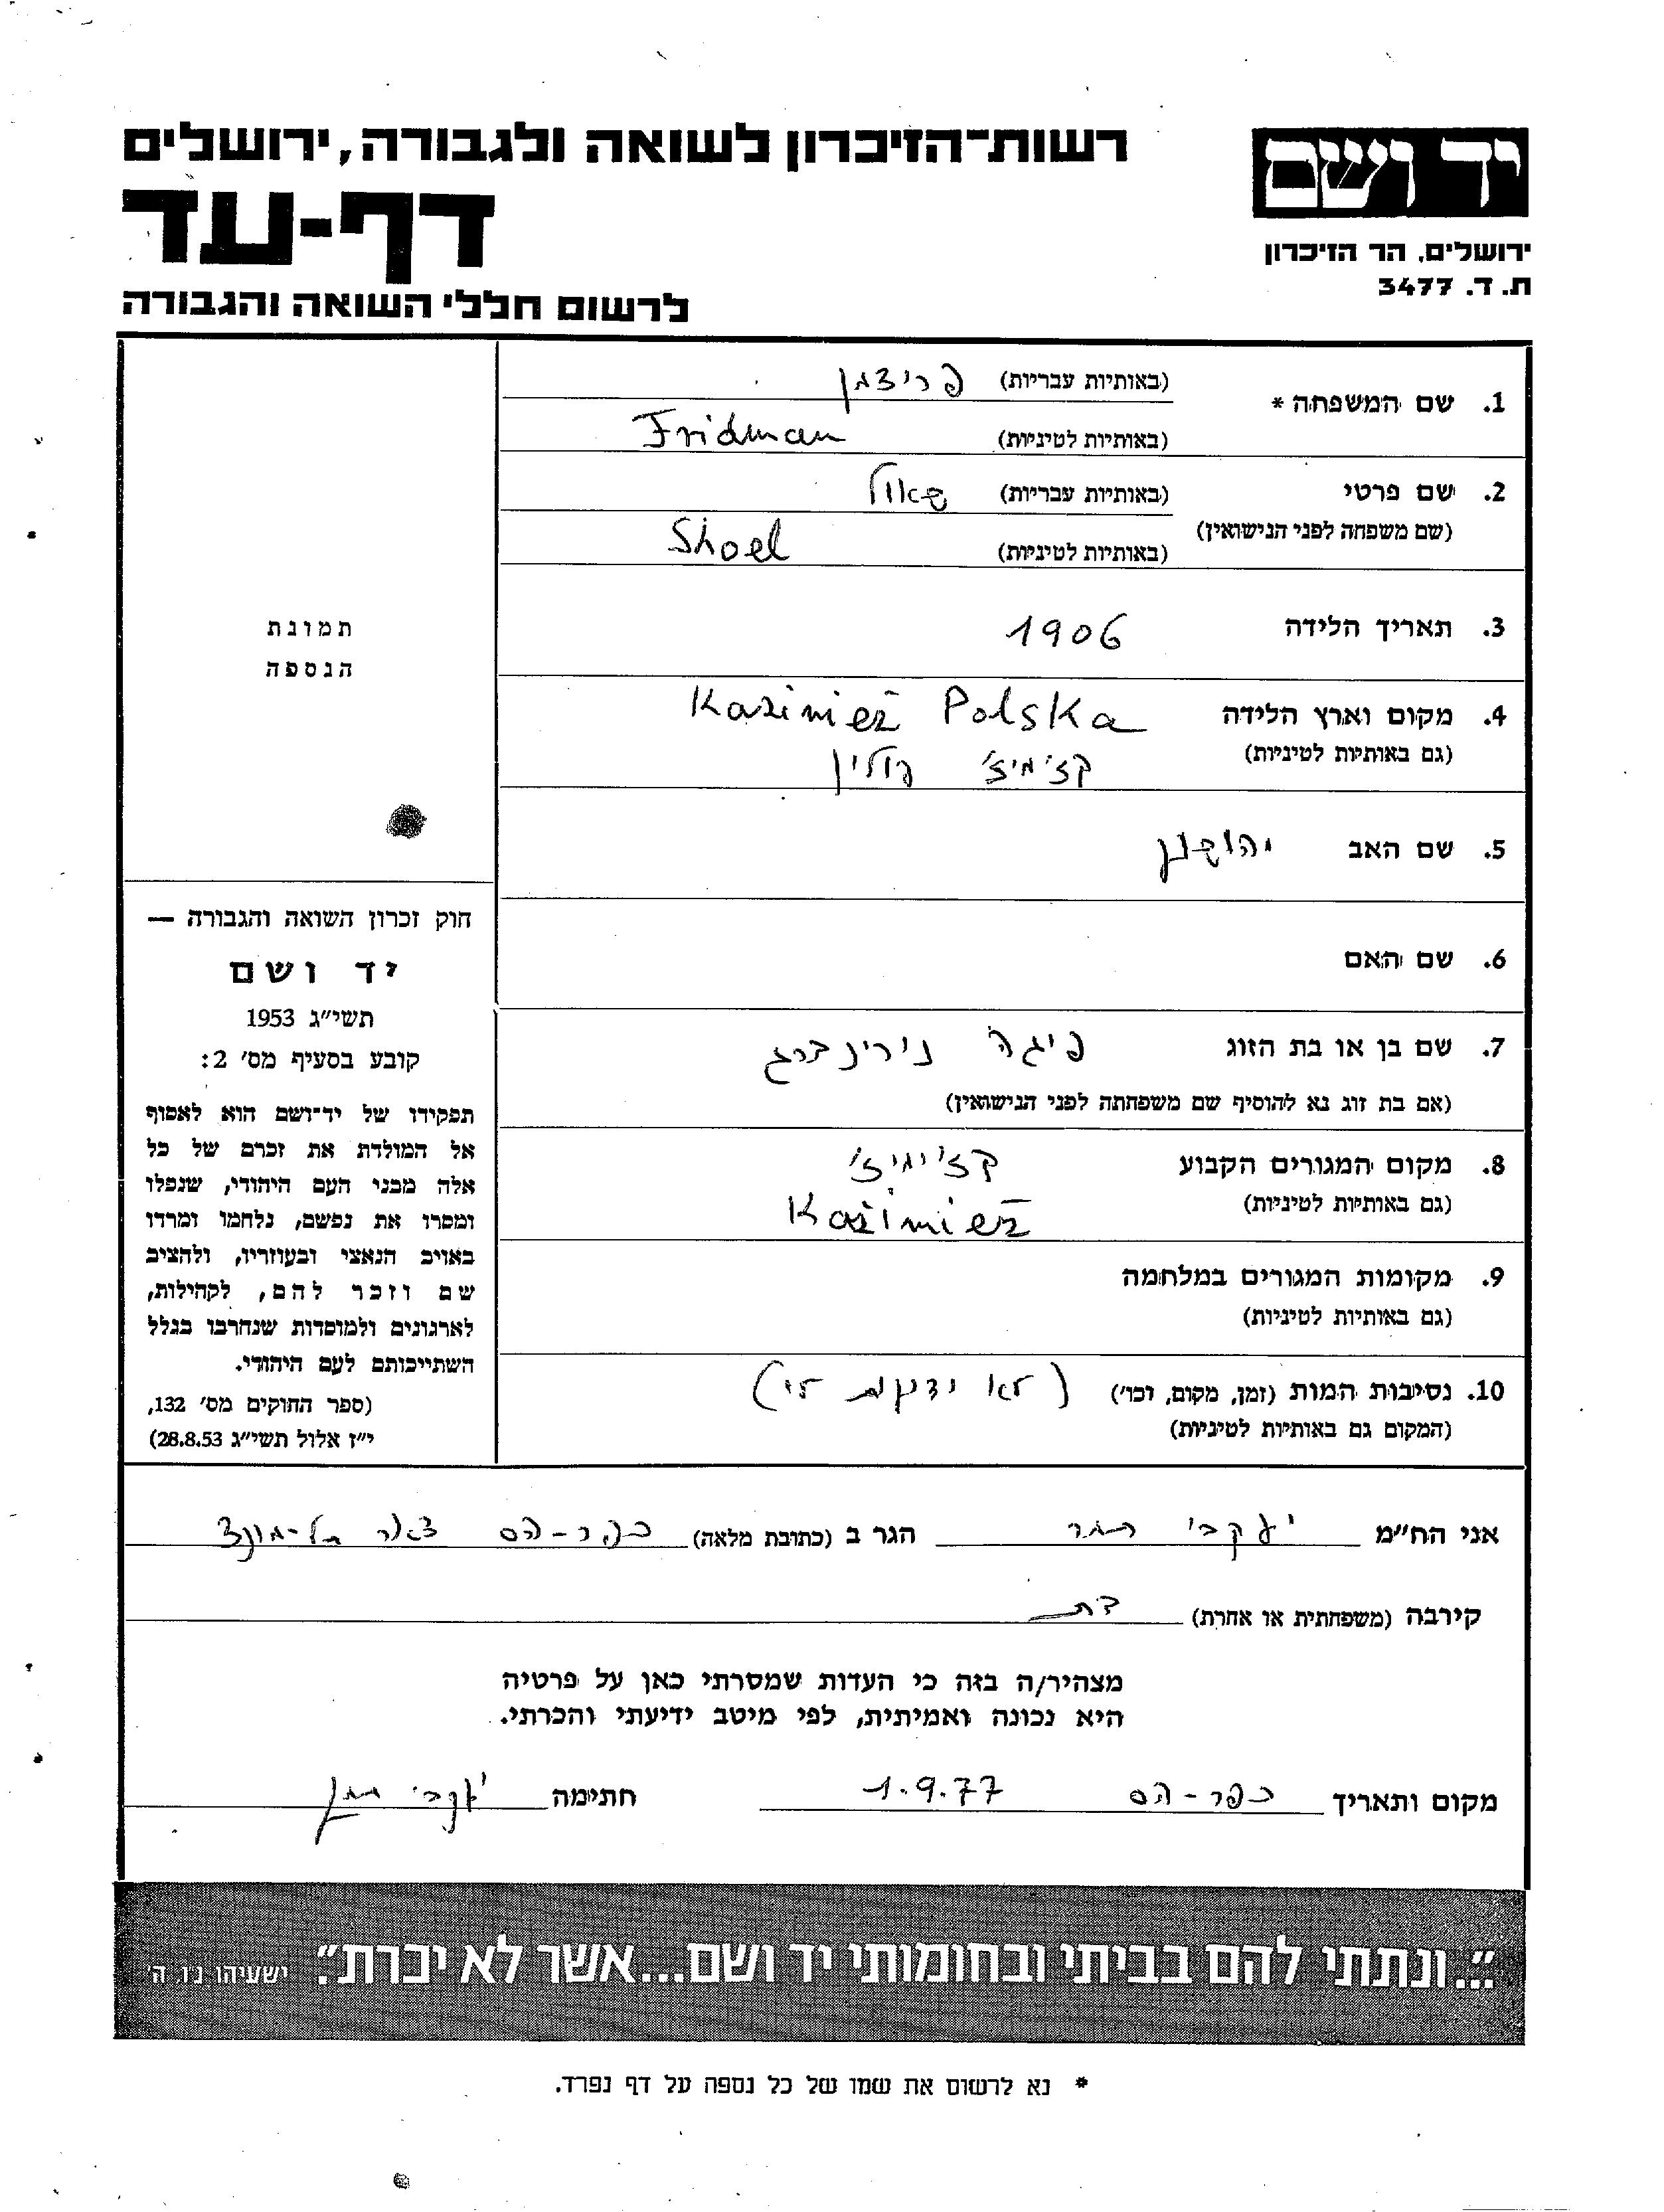 רשות־הזיכרון לשואה ולגבורה, ירושלים
יד ושם
דף-עד
ירושלים, הר הזיכרון
ת. ד. 3477
לרשום חללי השואה והגבורה
1. שם המשפחה *
(באותיות עבריות) פרידמן
(באותיות לטיניות) Fridman
2. שם פרטי
(באותיות עבריות) שאול
(שם משפחה לפני הנישואין)
(באותיות לטיניות) Shoel
3. תאריך הלידה 1906
4. מקום וארץ הלידה Kazimież Polska
(גם באותיות לטיניות) קז'מיז' פולין
5. שם האב יהושע
6. שם האם
7. שם בן או בת הזוג פיגה נירינברג
(אם בת זוג נא להוסיף שם משפחתה לפני הנישואין)
8. מקום המגורים הקבוע קז'ימיז'
(גם באותיות לטיניות) Kazimież
9. מקומות המגורים במלחמה
(גם באותיות לטיניות)
10. נסיבות המות (זמן, מקום, וכו') (לא ידוע לי)
(המקום גם באותיות לטיניות)
תמונת
הנספה
חוק זכרון השואה והגבורה —
יד ושם
תשי״ג 1953
קובע בסעיף מס׳ 2:
תפקידו של יד־ושם הוא לאסוף
אל המולדת את זכרם של כל
אלה מבני העם היהודי, שנפלו
ומסרו את נפשם, נלחמו ומרדו
באויב הנאצי ובעוזריו, ולהציב
שם וזכר להם, לקהילות,
לארגונים ולמוסדות שנחרבו בגלל
השתייכותם לעם היהודי.
(ספר החוקים מס׳ 132,
י״ז אלול תשי״ג 28.8.53)
אני הח״מ יעקבי תמר הגר ב (כתובת מלאה) כפר-הס דאר תל-מונד
קירבה (משפחתית או אחרת) בת
מצהיר/ה בזה כי העדות שמסרתי כאן על פרטיה
היא נכונה ואמיתית, לפי מיטב ידיעתי והכרתי.
מקום ותאריך כפר-הס 1.9.77 חתימה יעקבי תמר
"...ונתתי להם בביתי ובחומותי יד ושם...אשר לא יכרת". ישעיהו נ״ו ה׳
* נא לרשום את שמו של כל נספה על דף נפרד.